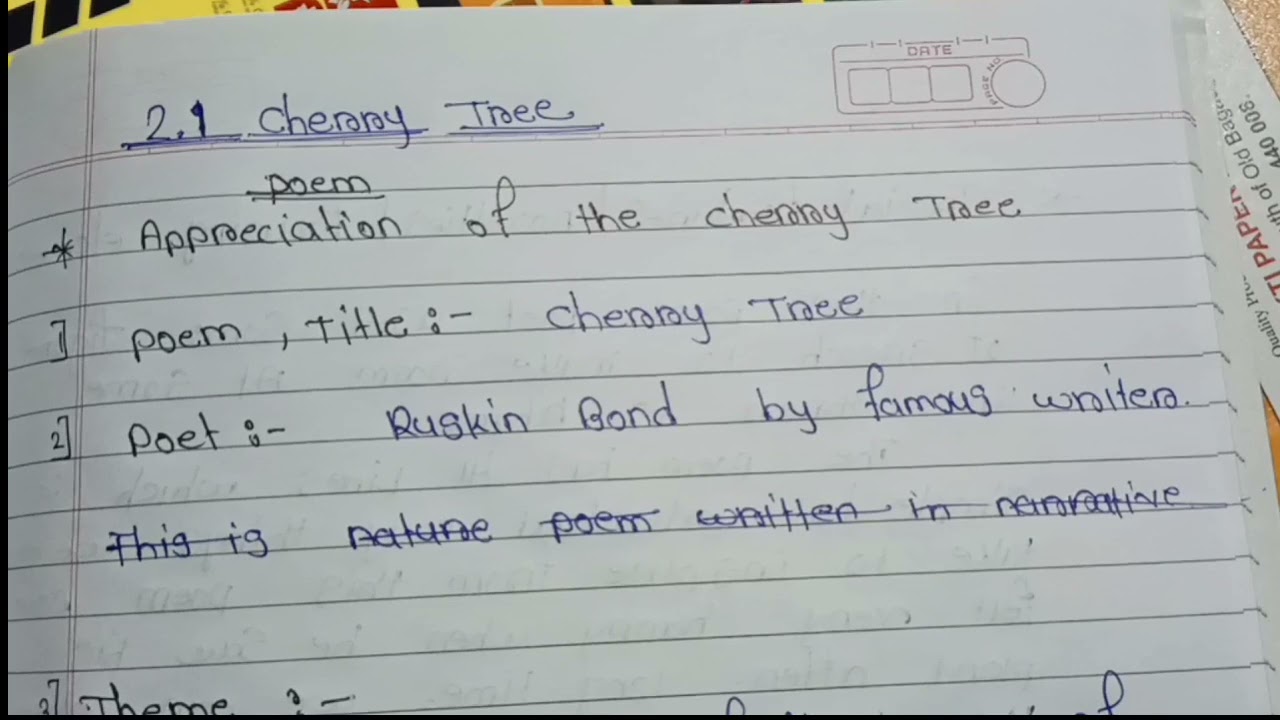 DATE
PAGE NO
2.1 Cherry Tree
Poem
* Appreciation of the cherry Tree
1] Poem, Title :- Cherry Tree
2] Poet :- Ruskin Bond by famous writer.
This is nature poem written in narrative
3] Theme :- of
of Old Bagad
440 008.
TI PAPER
Quality